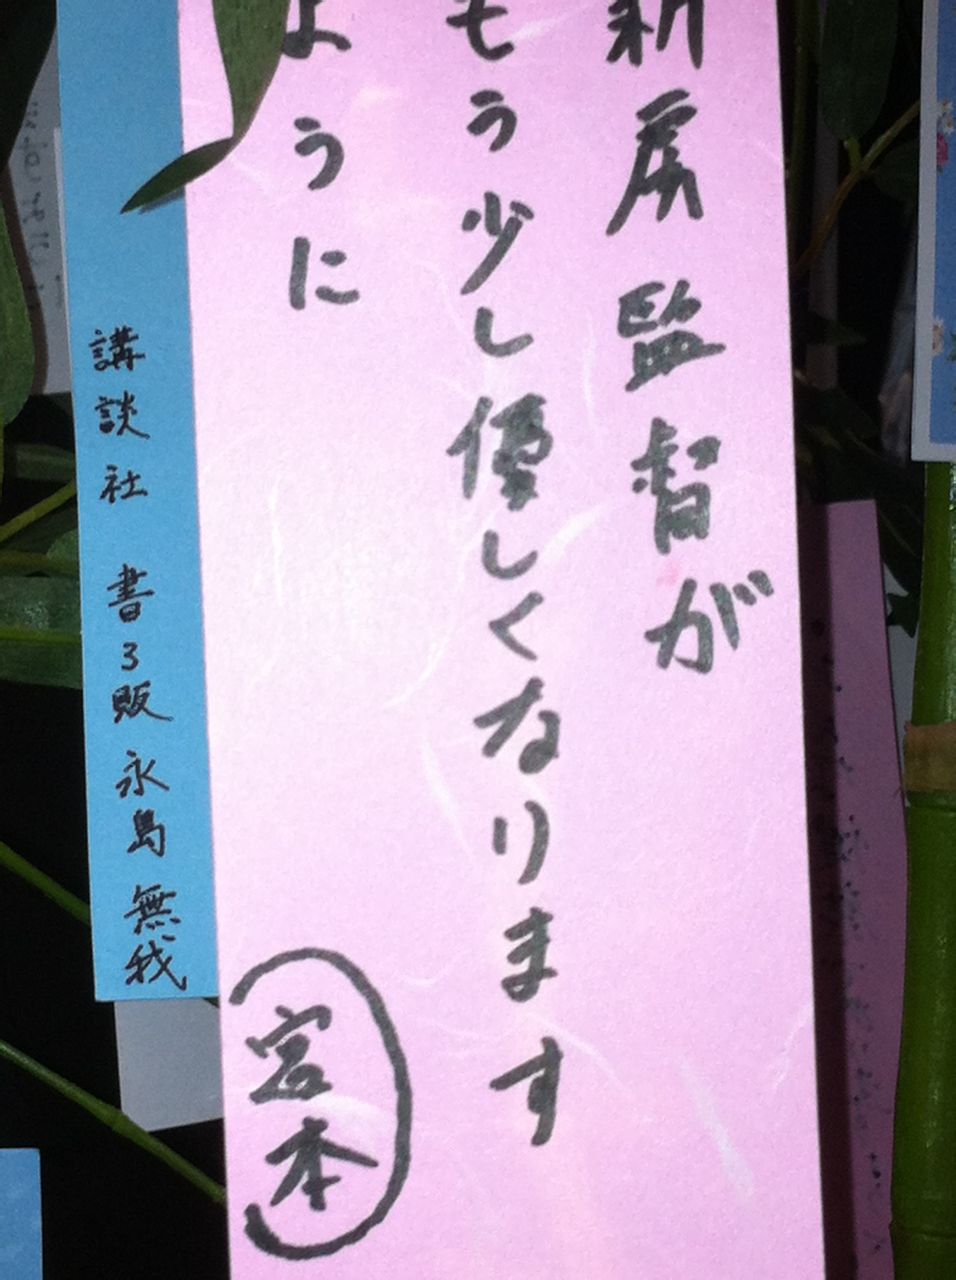 新房監督が
もう少し優しくなります
ように
宮本
講談社 書3販 永島 無我